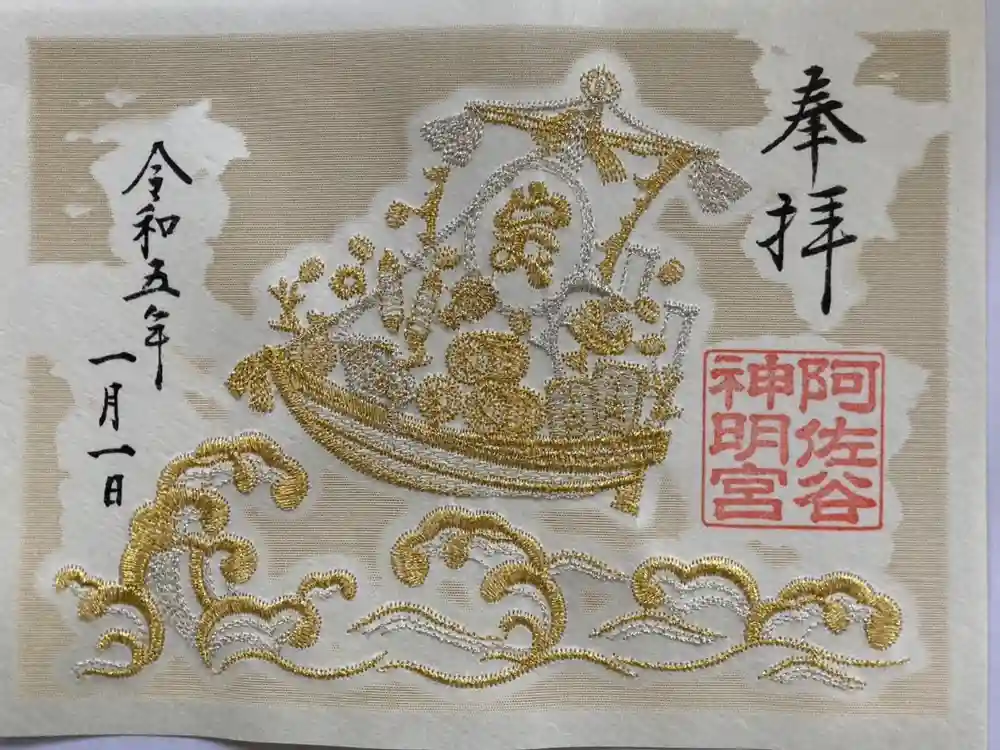 奉拝
阿佐谷
神明宮
宝
令和五年
一月一日